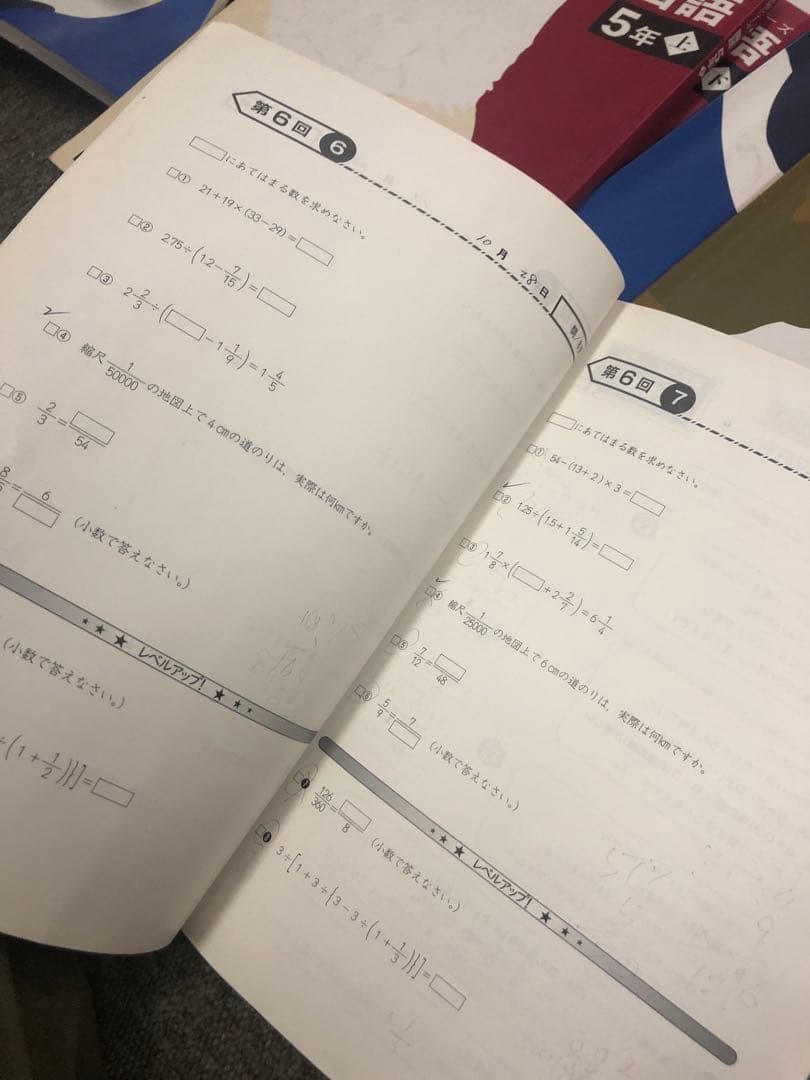 国語
5年上
下
第6回 6
□にあてはまる数を求めなさい。
10月28日
□① 21+19×(33−29)=□
□② 2.75÷(1.2−7/15)=□
□③ 2 2/3÷(□−1 1/9)=1 4/5
□④ 縮尺1/50000の地図上で4cmの道のりは、実際は何kmですか。
□⑤ 2/3=□/54
=6/□ (小数で答えなさい。)
★★★ レベルアップ! ★★★
(小数で答えなさい。)
÷(1+1/2)}]=□
第6回 7
□にあてはまる数を求めなさい。
□① 54−(13+2)×3=□
□② 1.25÷(1.5+1 5/14)=□
□③ 1 7/8×(□+2 2/7)=6 1/4
□④ 縮尺1/25000の地図上で6cmの道のりは、実際は何kmですか。
□⑤ 7/12=□/48
□⑥ 5/9=7/□ (小数で答えなさい。)
★★★ レベルアップ! ★★★
□❼ 126/360=□/8 (小数で答えなさい。)
□❽ 3÷[1+3÷{3−3÷(1+1/3)}]=□